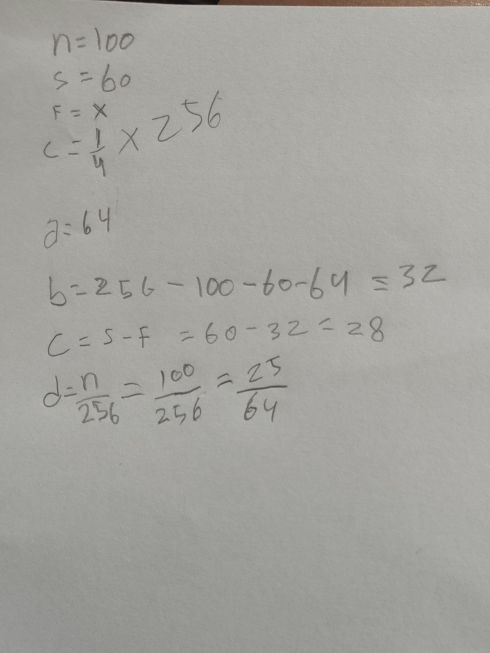 n=100
s=60
F=x
c=1/4 x 256
a=64
b=256-100-60-64=32
c=s-F=60-32=28
d=n/256=100/256=25/64